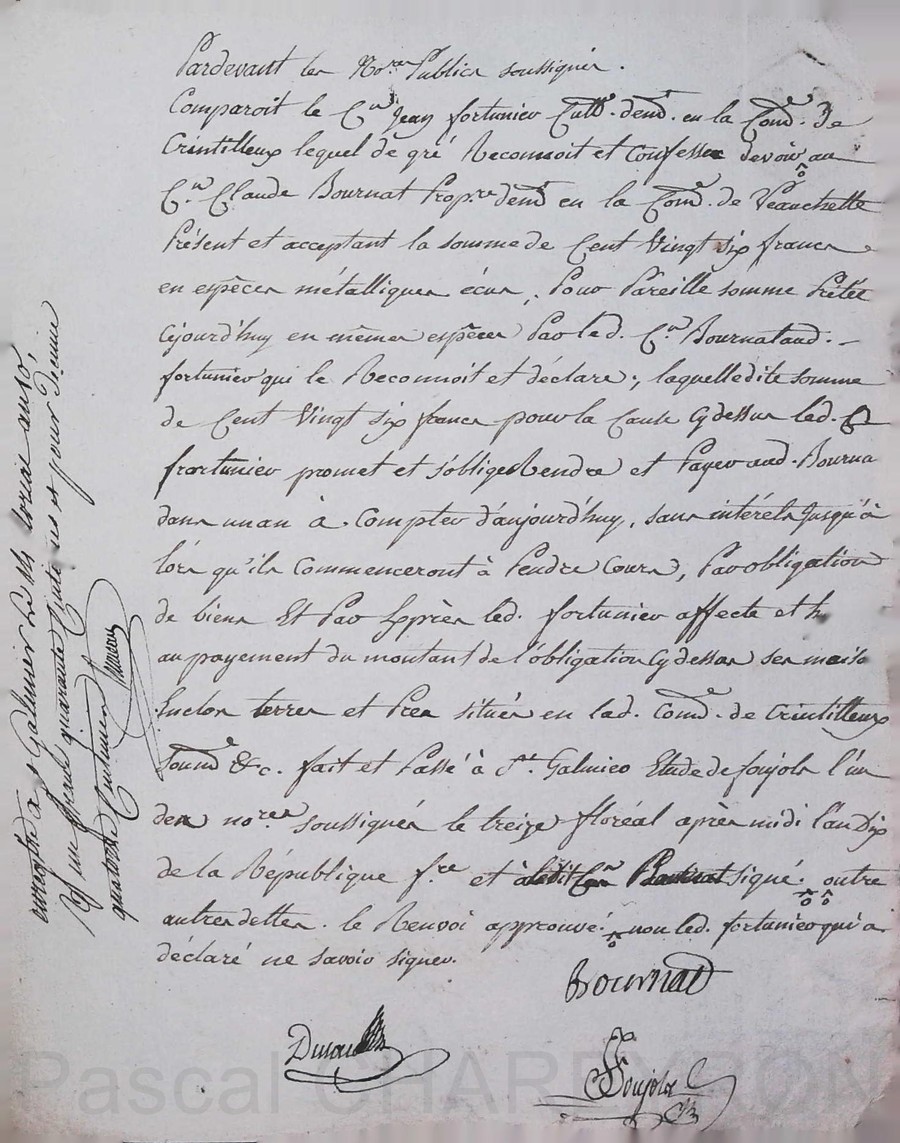 Pardevant les No.res Publics soussignés.
Comparoit le C.en Jean fortunier Cult.r demt. en la Com.e De
Crintilleux lequel de gré Reconnoit et Confesse devoir au
C.en Claude Bournat Prop.re demt en la Com.e de Veauchette
Présent et acceptant la somme de Cent Vingt six francs
en espèces métalliques écus, Pour Pareille somme Prêtée
ajourd'huy en mêmes espèces Par led. C.en Bournat aud.
fortunier qui le Reconnoit et déclare, laquelle dite somme
de Cent Vingt six francs pour la Cause Cydessus led. C
frortunier promet et s'oblige Rendre et Payer aud. Bourna
dans un an à Compter d'aujourd'huy, sans intérêts Jusqu'à
lors qu'ils Commenceront à Prendre Cours, Par obligation
de biens Et Par Exprès led. fortunier affecte et h
au payement du montant de l'obligation Cydessus ses maiso
Enclos terres et Prés situés en lad. Com.e de Crintilleux
Soum.e &c. fait et Passé à St. Galmier Etude de foujols l'un
des no.res soussignés le treize floréal après midi l'an Dix
de la République f.se et signé. outre
autres dettes. le Renvoi approuvé. non led. fortunier qui a
déclaré ne savoir signer.
Bournat
Foujols
enregtré à St Galmier le
un franc quarante Cinq et pour Dixme
quatorze Centimes
Pascal CHAREYRON